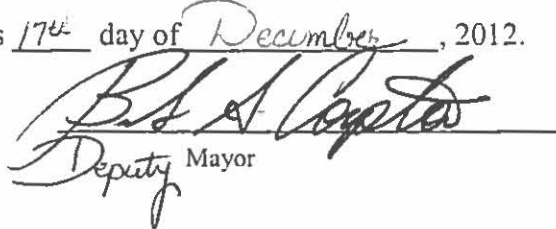 s 17th day of December, 2012.
Deputy Mayor